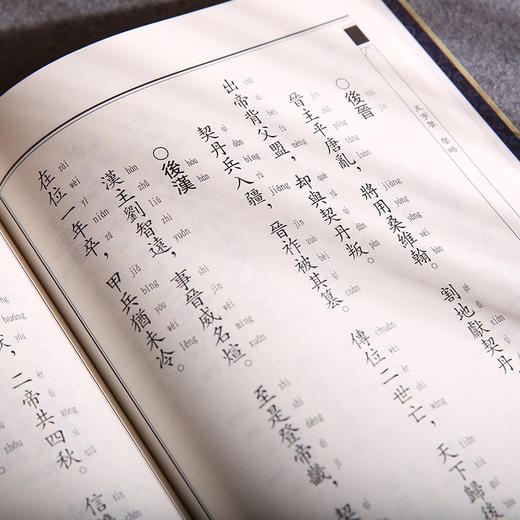 五字鑒 鑒略
○後晉
晉主平唐亂，將用桑維翰。割地獻契丹，
出帝背父盟，却與契丹叛。
契丹兵入疆，晉祚被其篡。傳位二世亡，天下歸後
○後漢
漢主劉智遠，事晉威名煊。至是登帝畿，契
在位一年卒，甲兵猶未冷。
二帝共四秋。信